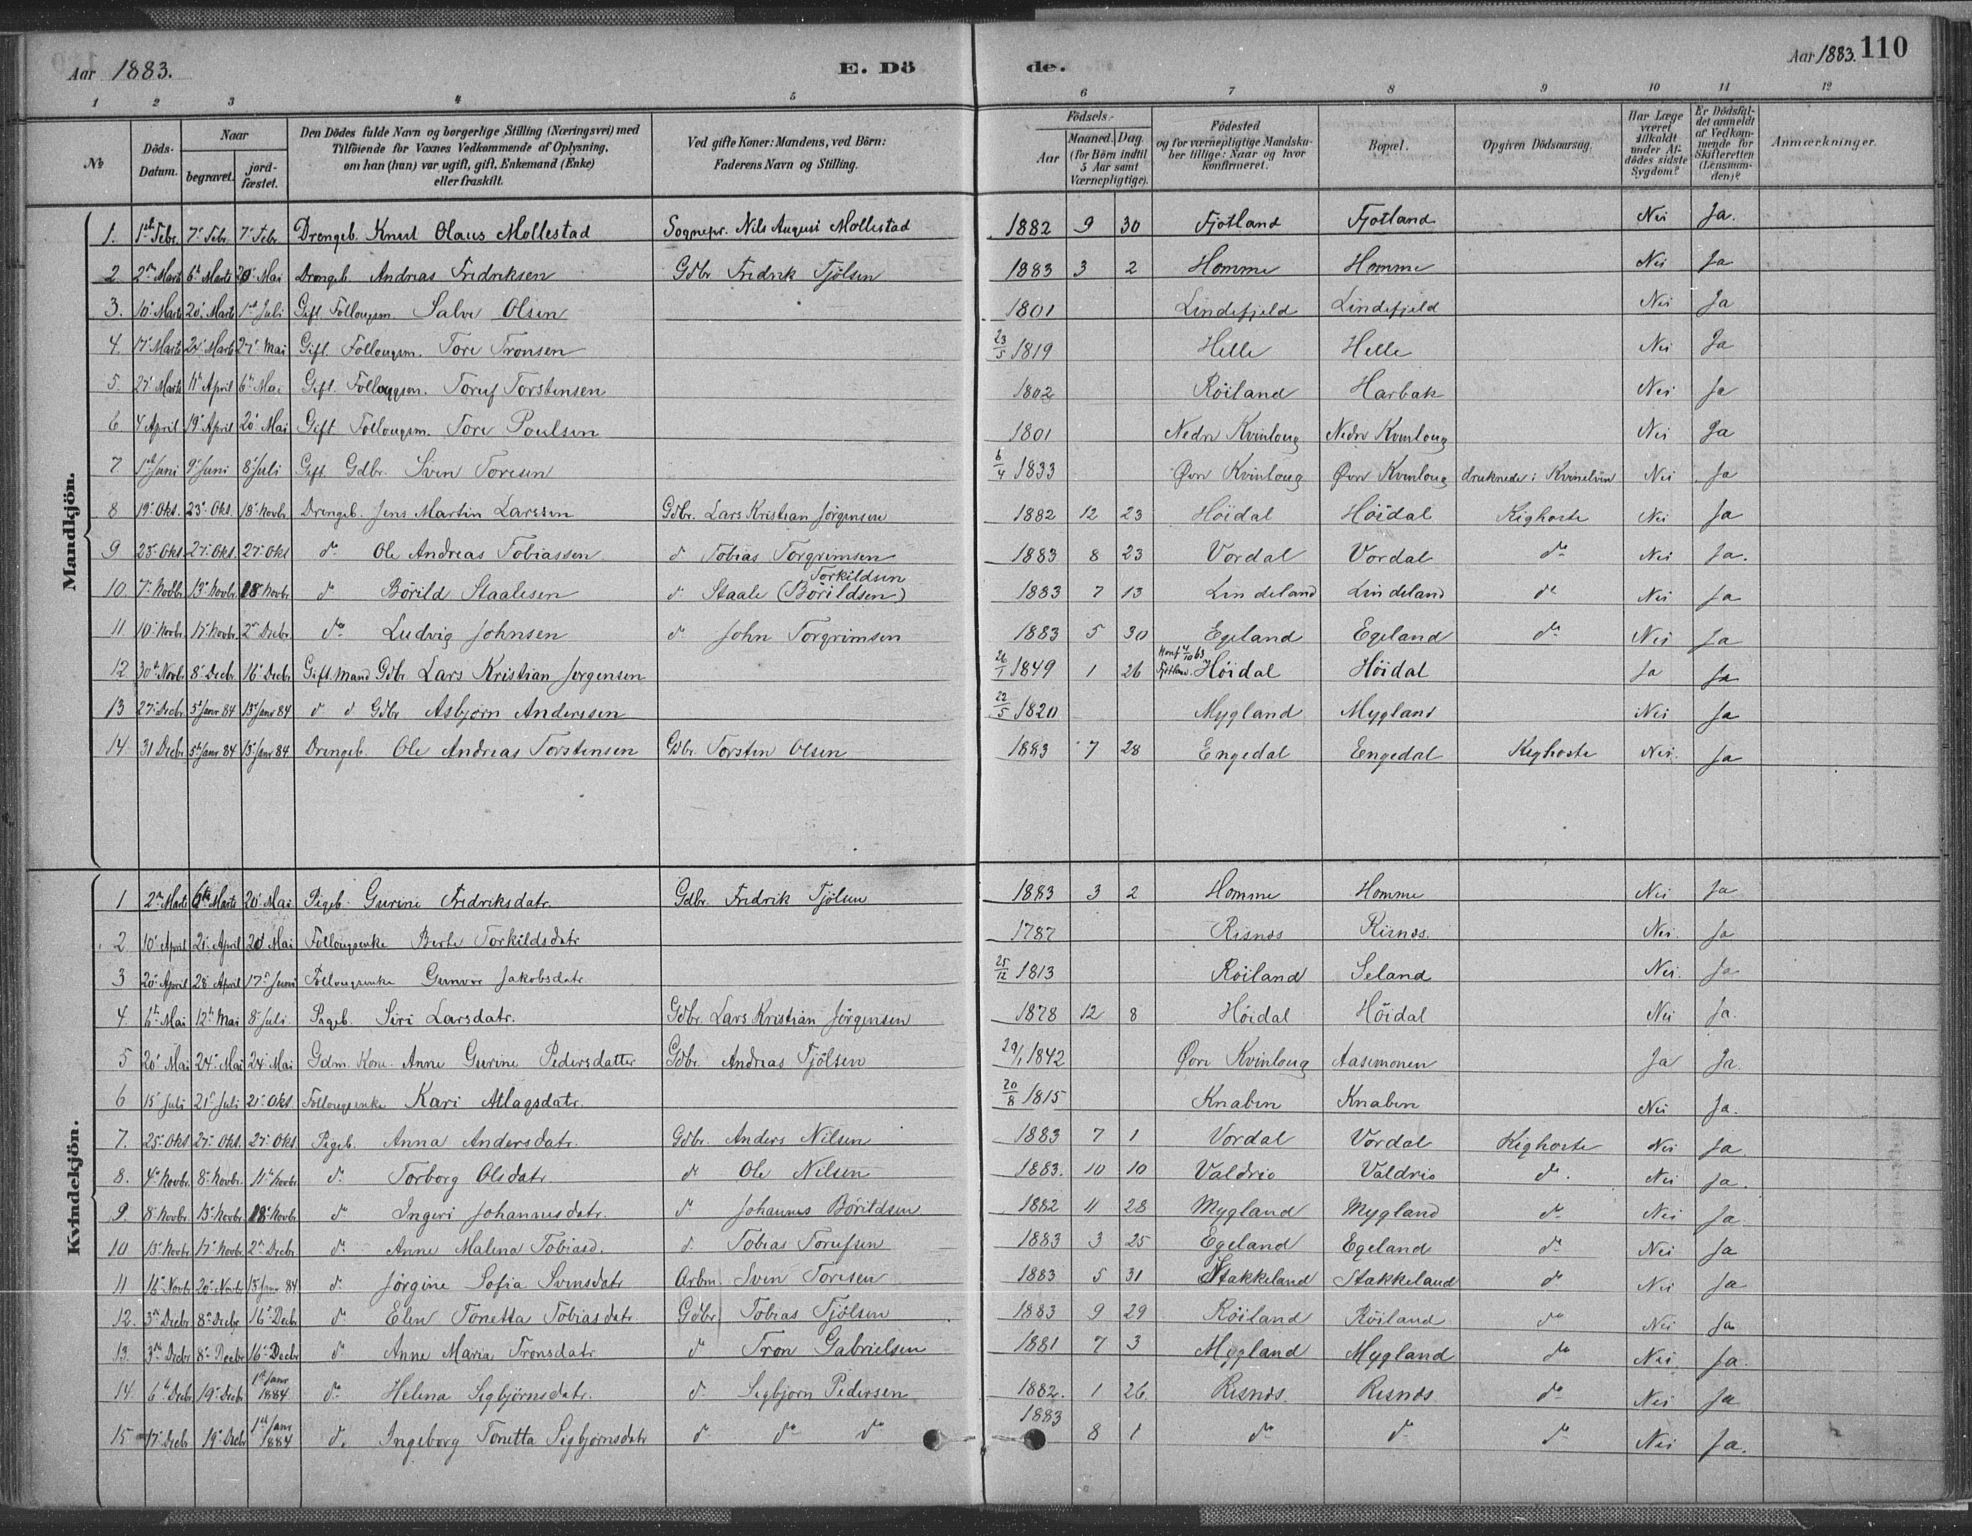 Aar 1883. E. Dö de. Aar 1883. 110
1 2 3 4 5 6 7 8 9 10 11 12
No Döds-Datum. Naar begravet. jordfæstet. Den Dödes fulde Navn og borgerlige Stilling (Næringsvei) med Tilföiende for Voxnes Vedkommende af Oplysning, om han (hun) var ugift, gift, Enkemand (Enke) eller fraskilt. Ved gifte Koner: Mandens, ved Börn: Faderens Navn og Stilling. Födsels- Aar Maaned. Dag. (for Börn indtil 5 Aar samt Værnepligtige). Födested og for værnepligtige Mandskaber tillige: Naar og hvor konfirmeret. Bopæl. Opgiven Dödsaarsag. Har Læge været tilkaldt under Afdödes sidste Sygdom? Er Dödsfaldet anmeldt af Vedkommende for Skifteretten (Lensmanden)? Anmærkninger.
Mandkjön.
1. 1ste Febr. 7' Febr 7' Febr. Drengeb. Knut Olaus Mollestad Sognepr. Nils August Mollestad 1882 9 30 Fjotland Fjotland Nei Ja.
2. 2n Marts 6te Marts 20' Mai Drengeb. Andreas Fredriksen Gdbr. Fredrik Tjölsen 1883 3 2 Homme Homme Nei Ja
3. 10' Marts 20' Marts 1ste Juli Gift. Follougsm. Salve Olsen 1801 Lindefjeld Lindefjeld Nei Ja
4. 17' Marts 24' Marts 27' Mai Gift. Follougsm. Tore Tronsen 23/5 1819 Helle Helle Nei Ja
5. 27' Marts 11te April 6te Mai Gift. Follougsm. Toruf Torstensen 1802 Röiland Harbak Nei Ja
6 4 April 19' April 20' Mai Gift Follougsm. Tore Poulsen 1801 Nedre Kvinloug Nedre Kvinloug Nei Ja
7. 1ste Juni 9' Juni 8' Juli Gift. Gdbr. Sven Toresen 6/4 1833 Övre Kvinloug Övre Kvinloug druknede i Kvinelven Nei Ja
8 19' Okt. 23' Okt. 18' Novbr Drengeb. Jens Martin Larssen Gdbr. Lars Kristian Jörgensen 1882 12 23 Höidal Höidal Kighoste Nei Ja
9 25' Okt. 27' Okt. 27' Okt do Ole Andreas Tobiassen do Tobias Torgrimsen 1883 8 23 Vordal Vordal do Nei Ja.
10. 7' Novbr. 13' Novbr. 18' Novbr do Börild Staalesen do Staale (Börildsen) Torkildsen 1883 7 13 Lindeland Lindeland do Nei Ja
11 10' Novbr. 17' Novbr. 2n Decbr. do Ludvig Johnsen do John Torgrimsen 1883 5 30 Egeland Egeland do Nei Ja
12 30te Novbr. 8' Decbr. 16' Decbr Gift. Mand Gdbr. Lars Kristian Jørgensen 26/1 1849 1 26 Konf. 4/10 63 Fjotland Höidal Höidal Ja Ja
13 27' Decbr. 5' Janr 84 13' Janr 84 do do Gdbr Asbjørn Anderssen 22/5 1820 Mygland Mygland Nei Ja
14. 31 Decbr. 5te Janr 84 13' Janr 84. Drengeb. Ole Andreas Torstensen Gdbr. Torsten Olsen 1883 7 28 Engedal Eengedal Kighoste Nei. Ja
Kvindekjön.
1 2n Marts 6te Marts 20' Mai Pigeb. Gurine Fredriksdatr. Gdbr. Fredrik Tjölsen 1883 3 2 Homme Homme Nei Ja
2 10' April 21' April 20' Mai Follougsenke Berte Torkildsdatr 1787 Risnes Risnes. Nei. Ja
3 20' April 28' April 17' Juni Follougsenke Gunvor Jakobsdatr 25/12 1813 Röiland Seland Nei. Ja
4. 6te Mai 12te Mai 8' Juli. Pigeb. Siri Larsdatr. Gdbr. Lars Kristian Jörgensen 1878 12 8 Höidal Höidal Nei Ja.
5 20' Mai 24' Mai 24' Mai Gdm. Kone. Anne Gurine Pedersdatter Gdbr. Andreas Tjölsen 29/1 1842 Övre Kvinloug Aasemonen Ja Ja
6 15' Juli 21' Juli 21' Okt. Follougsenke Kari Atlagsdatr. 20/8 1815 Knaben Knaben Nei Ja.
7. 25' Okt. 27' Okt. 27' Okt. Pigeb. Anna Andersdatr. Gdbr. Anders Nilsen 1883 7 1 Vordal Vordal Kighoste Nei Ja
8. 4' Novbr. 8' Novbr. 11te Novbr do Torborg Olsdatr. do Ole Nilsen 1883. 10 10 Valdrio Valdrio do. Nei Ja.
9. 8' Novbr 13' Novbr 18' Novbr do Ingeri Johannesdatr. do Johannes Börildsen 1882 11 28 Mygland Mygland do Nei Ja
10 13' Novbr 17' Novbr. 2n Decbr do Anne Malena Tobiasd. do Tobias Torufsen 1883 3 25 Egeland Egeland do Nei Ja
11 16' Novbr 20' Novbr 13' Janr 84 do. Jörgine Sofia Svensdatr Arbm. Sven Toresen 1883 5 31 Stakkeland Stakkeland do Nei Ja
12. 3n Decbr. 8' Decbr. 16' Decbr do Elen Tonetta Tobiasdatr Gdbr. Tobias Tjölsen 1883 9 29 Röiland Röiland do Nei Ja
13. 3n Decbr 8' Decbr 16' Decbr do Anne Maria Tronsdatr do Tron Gabrielsen 1881 7 3 Mygland Mygland do Nei. Ja.
14. 6te Decbr 19' Decbr 1ste Janr 1884 do Helena Sigbjörnsdatr. do Sigbjørn Pedersen 1882. 1 26 Risnes. Risnes. do Nei Ja
15 17' Decbr 19' Decbr 1ste Janr 1884 do. Ingeborg Tonetta Sigbjørnsdatr do do do 1883 8 1 do do do Nei Ja.